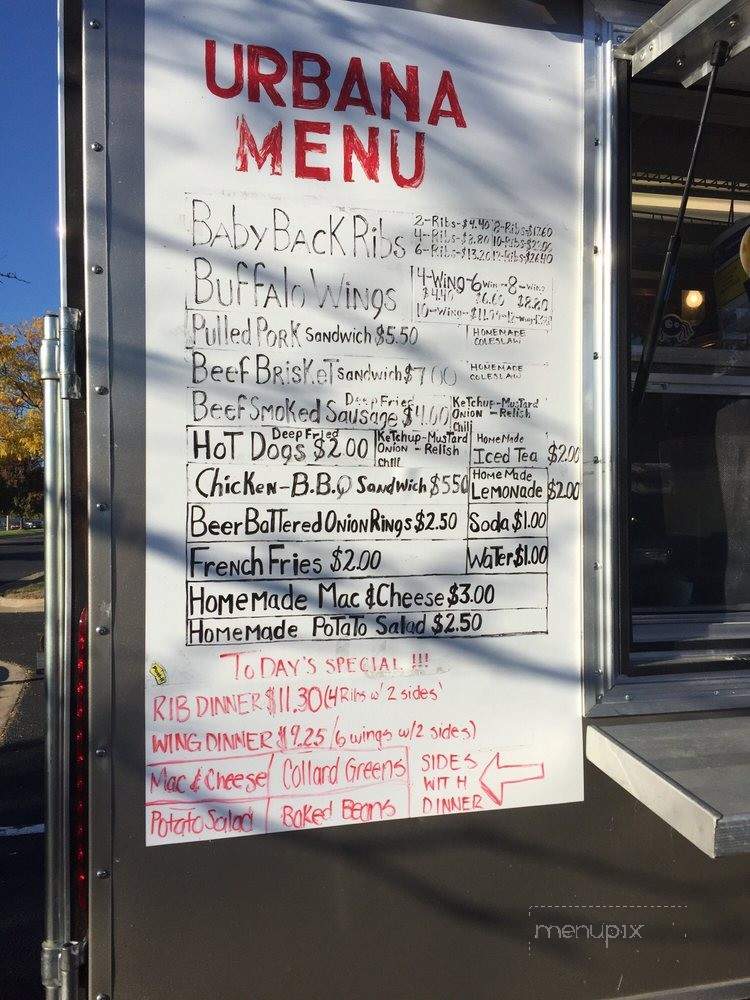 URBANA
MENU
Baby Back Ribs
2-Ribs-$4.40 8-Ribs-$17.60
4-Ribs-$8.80 10-Ribs-$22.00
6-Ribs-$13.20 12-Ribs-$26.40
Buffalo Wings
4-Wing-6 Win-8-Wing
$4.40 $6.60 $8.80
10-Wing-
Pulled Pork Sandwich $5.50
HOMEMADE
COLESLAW
Beef Brisket Sandwich $7.00
HOMEMADE
COLESLAW
Deep Fried
Beef Smoked Sausage $4.00
Ketchup-Mustard
Onion - Relish
Chili
Deep Fried
Hot Dogs $2.00
Ketchup-Mustard
Onion - Relish
Chili
HomeMade
Iced Tea $2.00
Chicken-B.B.Q Sandwich $5.50
HomeMade
Lemonade $2.00
Beer Battered Onion Rings $2.50
Soda $1.00
French Fries $2.00
Water $1.00
Homemade Mac & Cheese $3.00
Homemade Potato Salad $2.50
TODAY'S SPECIAL !!!
RIB DINNER $11.30 (4 Ribs w' 2 sides'
WING DINNER $9.25 (6 wings w/2 sides)
Mac & Cheese
Collard Greens
SIDES
WITH
DINNER
Potato Salad
Baked Beans
menupix